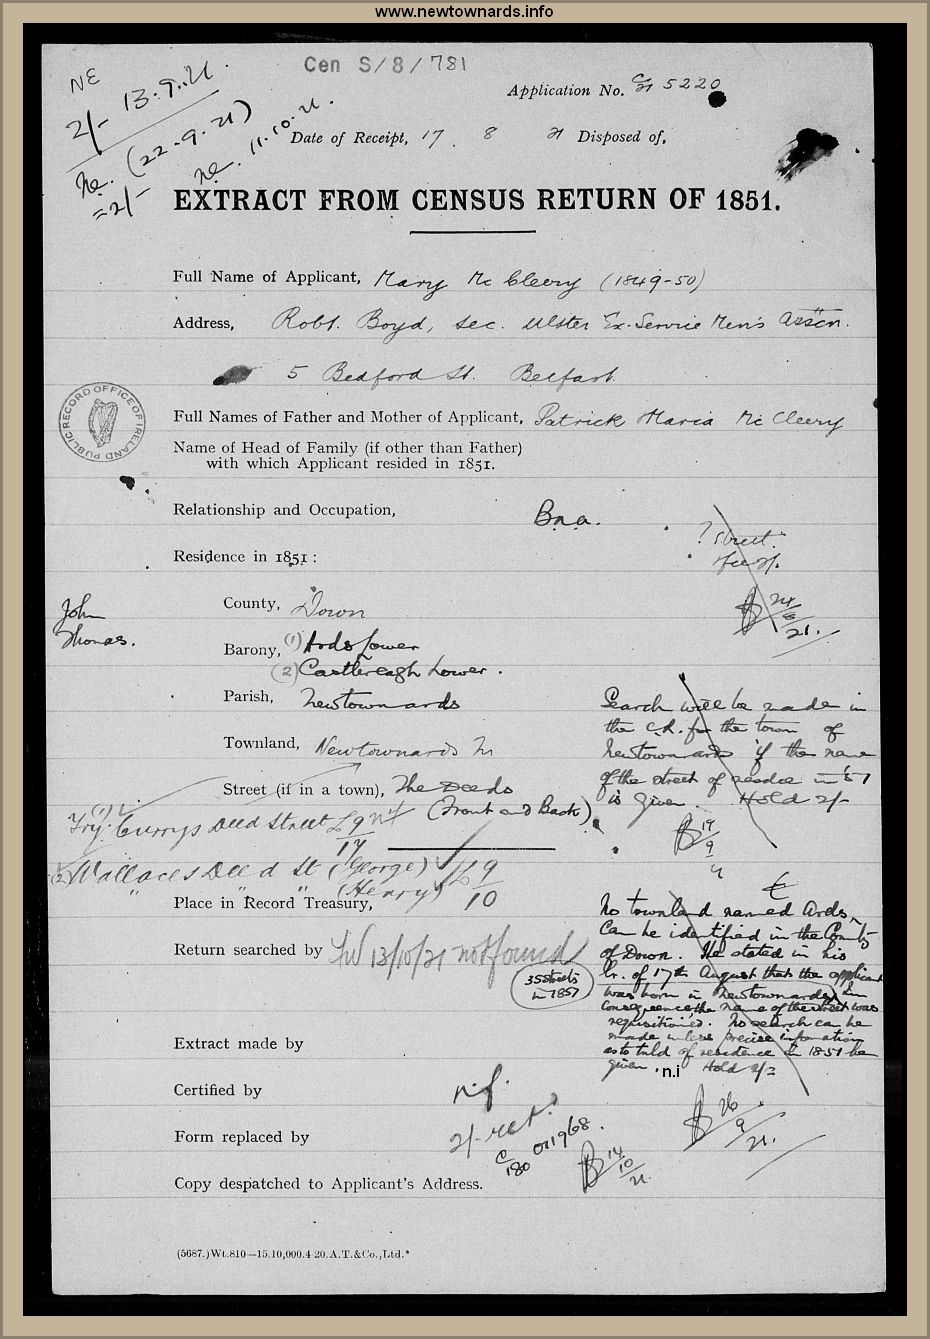 www.newtownards.info
Cen S/8/781
NE
2/- 13.9.21.
Application No. 5220
ne. (22.9.21)
ne. 11.10.21.
=2/-
Date of Receipt, 17 . 8 21 Disposed of,
EXTRACT FROM CENSUS RETURN OF 1851.
Full Name of Applicant, Mary Mc Cleery (1849-50)
Address, Robt. Boyd, Sec. Ulster Ex-Service Men's Assn.
5 Bedford St. Belfast.
PUBLIC RECORD OFFICE OF IRELAND
Full Names of Father and Mother of Applicant, Patrick Maria Mc Cleery
Name of Head of Family (if other than Father)
with which Applicant resided in 1851.
Relationship and Occupation,
B.n.a.
? Street.
Residence in 1851 :
24/8/21.
John
Thomas.
County, Down
Barony, (1) Ards Lower
(2) Castlereagh Lower.
Parish, Newtownards
Search will be made in
the C.R. for the town of
Newtownards if the name
of the street of residce in '51
is given. Hold 2/-
19/9/21
Townland, Newtownards
Street (if in a town), The Deeds
(Front and Back)
(1) Try: Currys Deed Street £9/17
(2) Wallaces Deed St (George) £9/10
" " " (Henry)
Place in Record Treasury,
No townland named Ards
can be identified in the County
of Down. He stated in his
lr. of 17th August that the applicant
was born in Newtownards, in
consequence the name of the street was
requisitioned. No search can be
made unless precise information
as to tnld of residence in 1851 be
given. n.i Hold 2/-
26/9/21.
Return searched by 13/10/21 not found
35 streets
in 1851
Extract made by
Certified by
n.f.
Form replaced by
2/- ret.
C/180 011968.
14/10/21.
Copy despatched to Applicant's Address.
(5687.)Wt.810—15.10,000.4-20.A.T.&Co.,Ltd.